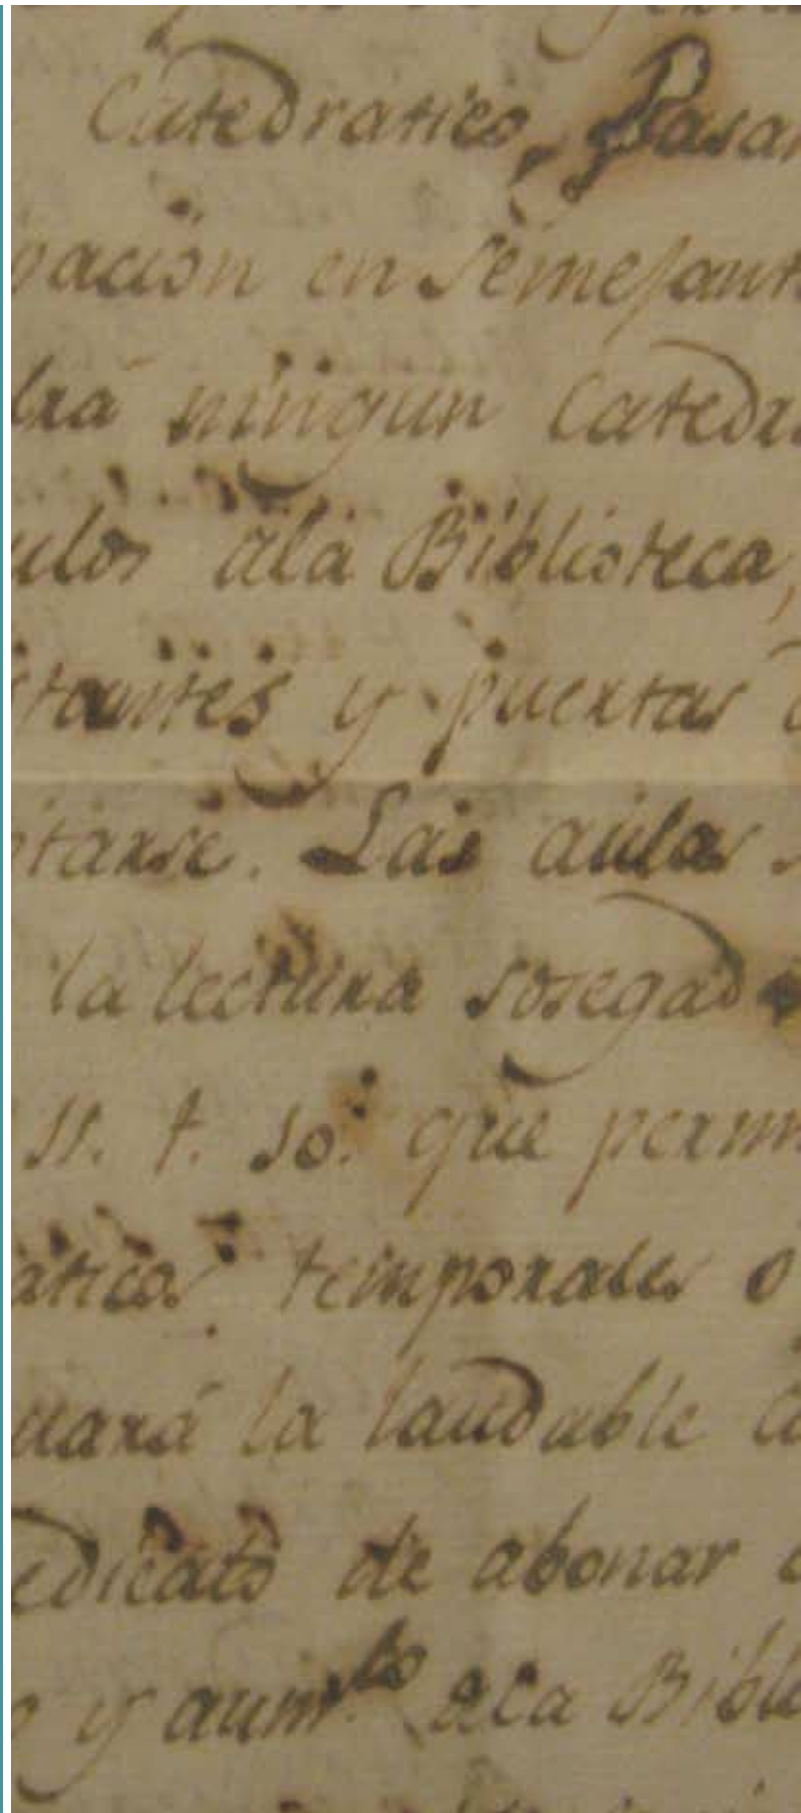 Catedratico, Pasan
vacion en Semejant
drá ningun Catedra
ulos ala Biblioteca,
stantes y puertas
tarse. Las aulas
la lectura sosegad
que permi
aticos temporales o
uará la laudable
edicato de abonar
y aumto. dela Bibl